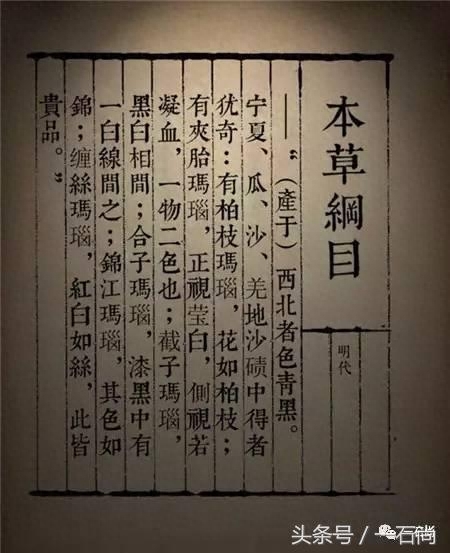 本草綱目
明代
——“（產于）西北者色青黑。
宁夏、瓜、沙、羌地沙磧中得者
犹奇：有柏枝瑪瑙，花如柏枝；
有夾胎瑪瑙，正視莹白，側視若
凝血，一物二色也；截子瑪瑙，
黑白相間；合子瑪瑙，漆黑中有
一白線間之；錦江瑪瑙，其色如
錦；缠絲瑪瑙，紅白如絲，此皆
貴品。”
头条号 / 一石尚